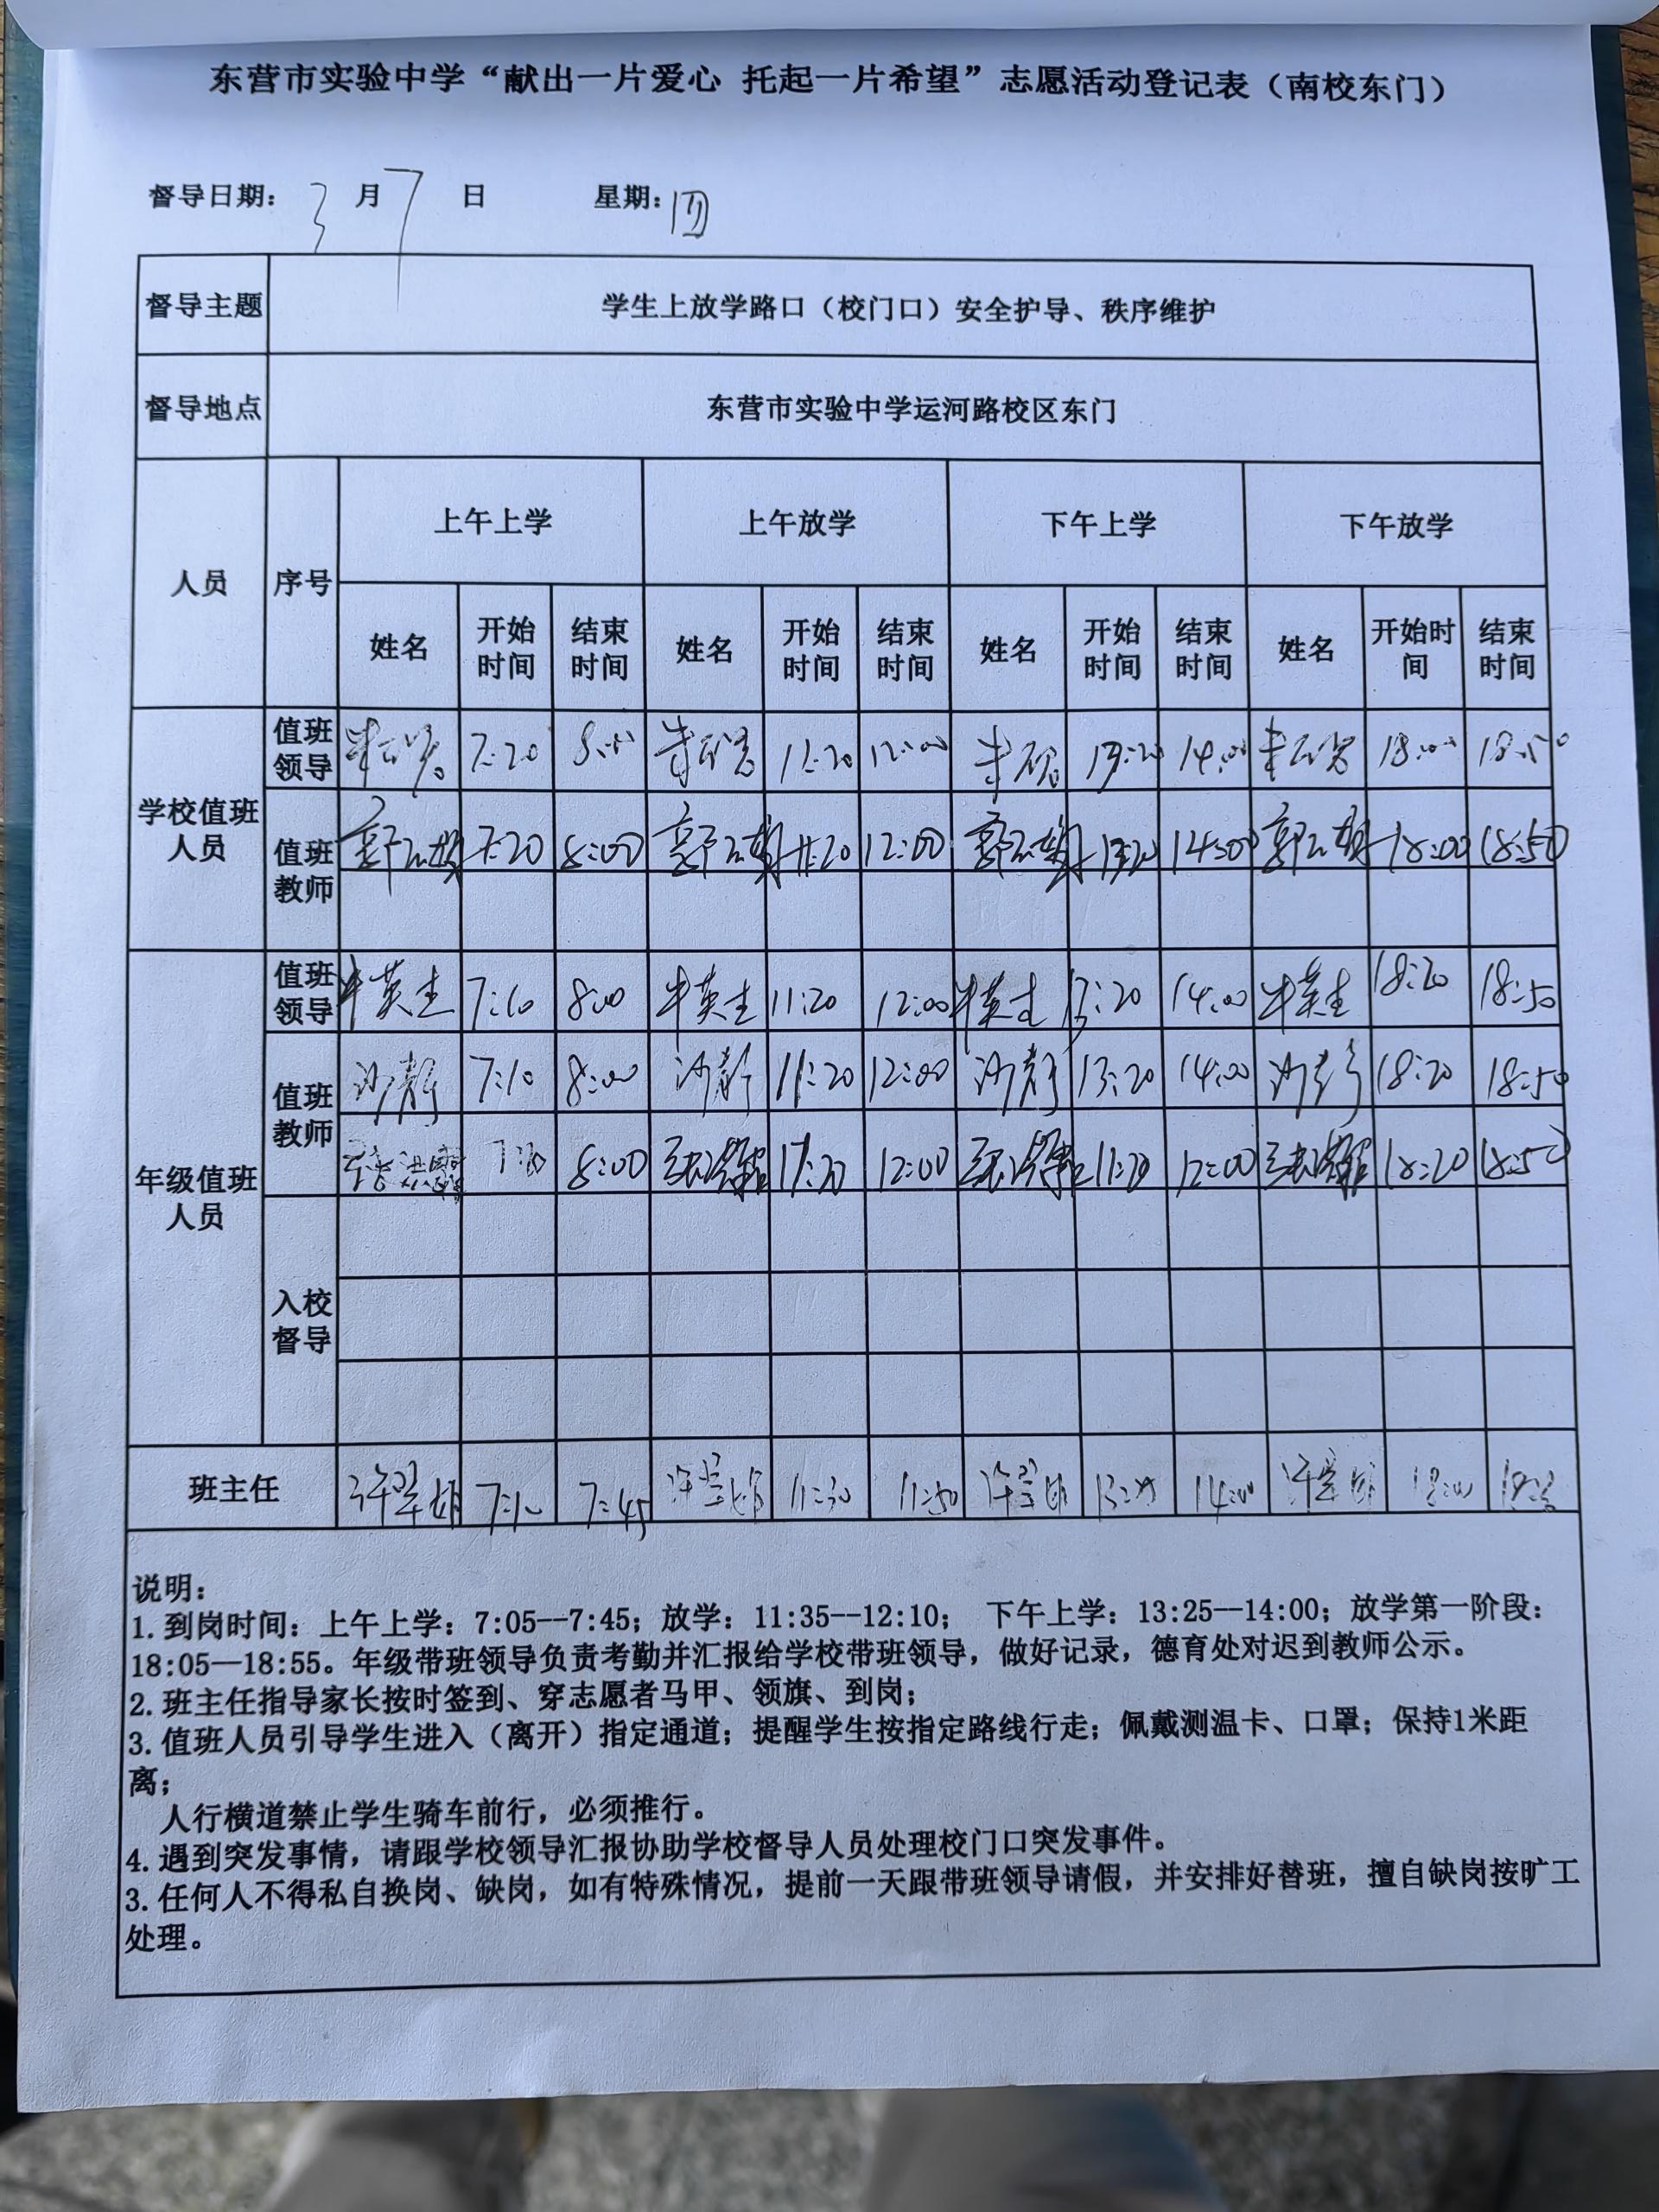 东营市实验中学“献出一片爱心 托起一片希望”志愿活动登记表（南校东门）
督导日期： 3 月 7 日 星期：四
督导主题 学生上放学路口（校门口）安全护导、秩序维护
督导地点 东营市实验中学运河路校区东门
人员 序号 上午上学 上午放学 下午上学 下午放学
姓名 开始时间 结束时间 姓名 开始时间 结束时间 姓名 开始时间 结束时间 姓名 开始时间 结束时间
学校值班人员
值班领导 7:20 8:00 11:20 12:00 13:20 14:00 18:00 18:50
值班教师 7:20 8:00 11:20 12:00 13:20 14:00 18:00 18:50
年级值班人员
值班领导 牛英杰 7:10 8:00 牛英杰 11:20 12:00 牛英杰 13:20 14:00 牛英杰 18:20 18:50
值班教师 沙静 7:10 8:00 沙静 11:20 12:00 沙静 13:20 14:00 沙静 18:20 18:50
8:00 12:00 12:00 18:20 18:50
入校督导
班主任 7:10 7:45 11:30 11:50 14:00 18:00
说明：
1.到岗时间：上午上学：7:05--7:45；放学：11:35--12:10； 下午上学：13:25—14:00；放学第一阶段：
18:05—18:55。年级带班领导负责考勤并汇报给学校带班领导，做好记录，德育处对迟到教师公示。
2.班主任指导家长按时签到、穿志愿者马甲、领旗、到岗；
3.值班人员引导学生进入（离开）指定通道；提醒学生按指定路线行走；佩戴测温卡、口罩；保持1米距
离；
人行横道禁止学生骑车前行，必须推行。
4.遇到突发事情，请跟学校领导汇报协助学校督导人员处理校门口突发事件。
3.任何人不得私自换岗、缺岗，如有特殊情况，提前一天跟带班领导请假，并安排好替班，擅自缺岗按旷工
处理。